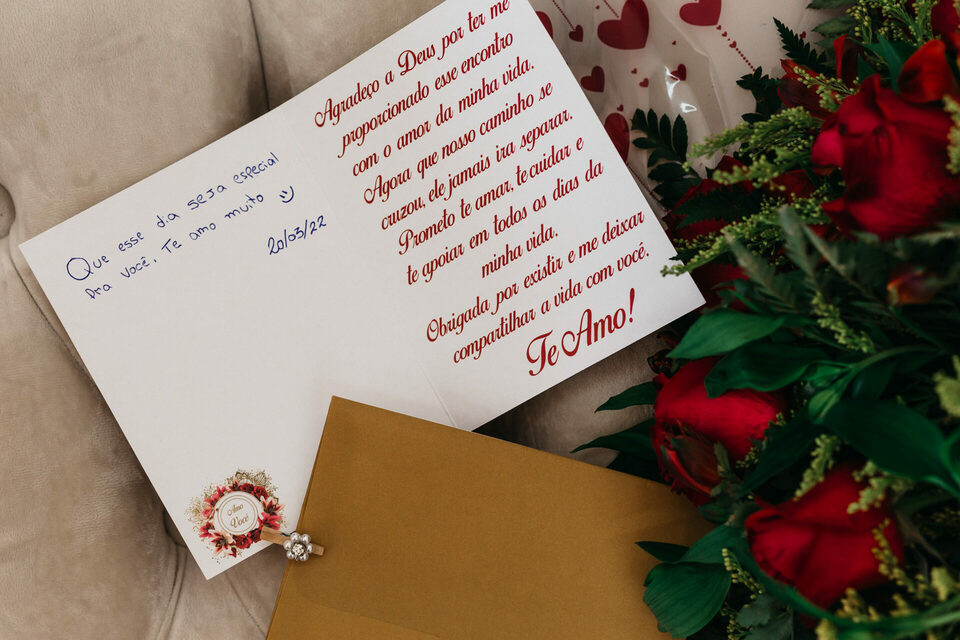 Que esse dia seja especial
pra você. Te amo muito
20/03/22
Amo
Você
Agradeço a Deus por ter me
proporcionado esse encontro
com o amor da minha vida.
Agora que nosso caminho se
cruzou, ele jamais ira separar.
Prometo te amar, te cuidar e
te apoiar em todos os dias da
minha vida.
Obrigada por existir e me deixar
compartilhar a vida com você.
Te Amo!